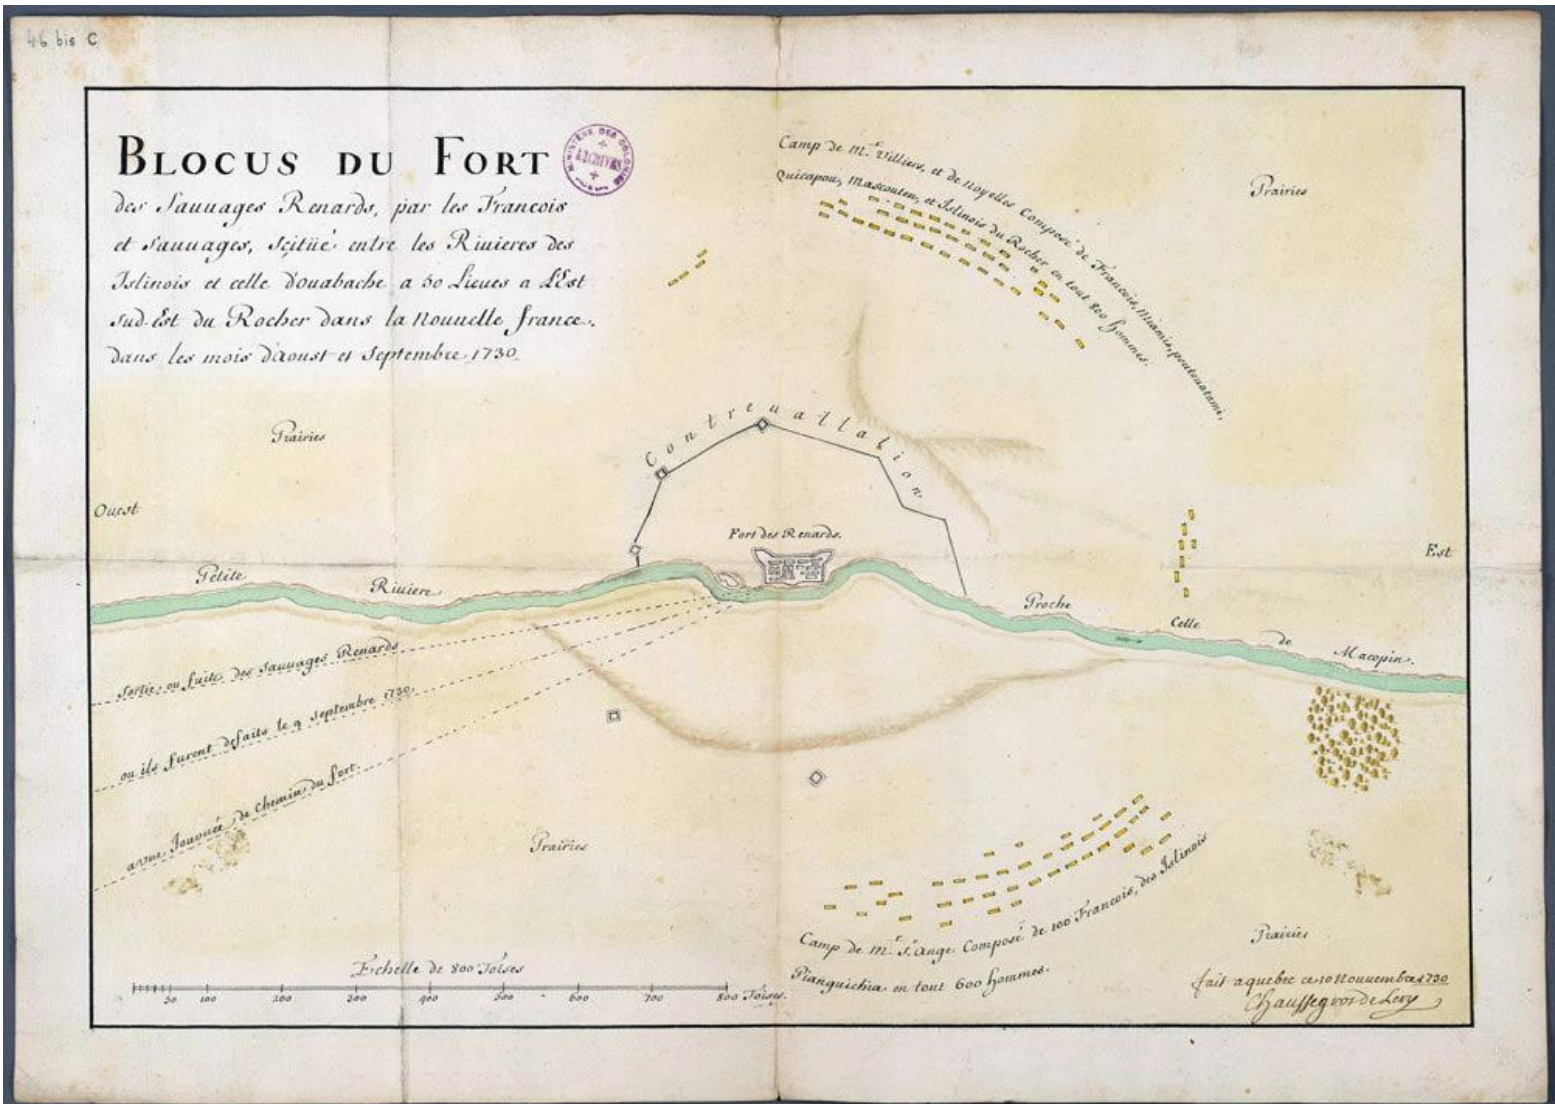 46 bis C
BLOCUS DU FORT
des Sauuages Renards, par les Francois
et Sauuages, Scitüé entre les Riuieres des
Islinois et celle Douabache a 50 Lieues a L'Est
Sud-Est du Rocher dans la Nouuelle france.
dans les mois d'aoust et Septembre 1730.
MINISTÈRE DES COLONIES
ARCHIVES
Camp de Mr. Villiers, et de Noyelles Composé de Francois, Miamis, pouteuatami,
Quicapou, Mascouten, et Islinois du Rocher en tout 800 hommes.
Prairies
Prairies
Contreuallation
Ouest
Fort des Renards.
Est
Petite Riuiere Proche Celle de Macopin.
Sortie ou fuite des Sauuages Renards
ou ils furent defaits le 9 Septembre 1730.
a une Journée de Chemin du fort.
Prairies
Camp de Mr. St. Ange Composé de 100 Francois, des Islinois
Pianguichia en tout 600 hommes.
Prairies
Echelle de 800 Toises
50 100 200 300 400 500 600 700 800 Toises.
fait a quebec ce 10 Nouuembre 1730
Chaussegros de Lery